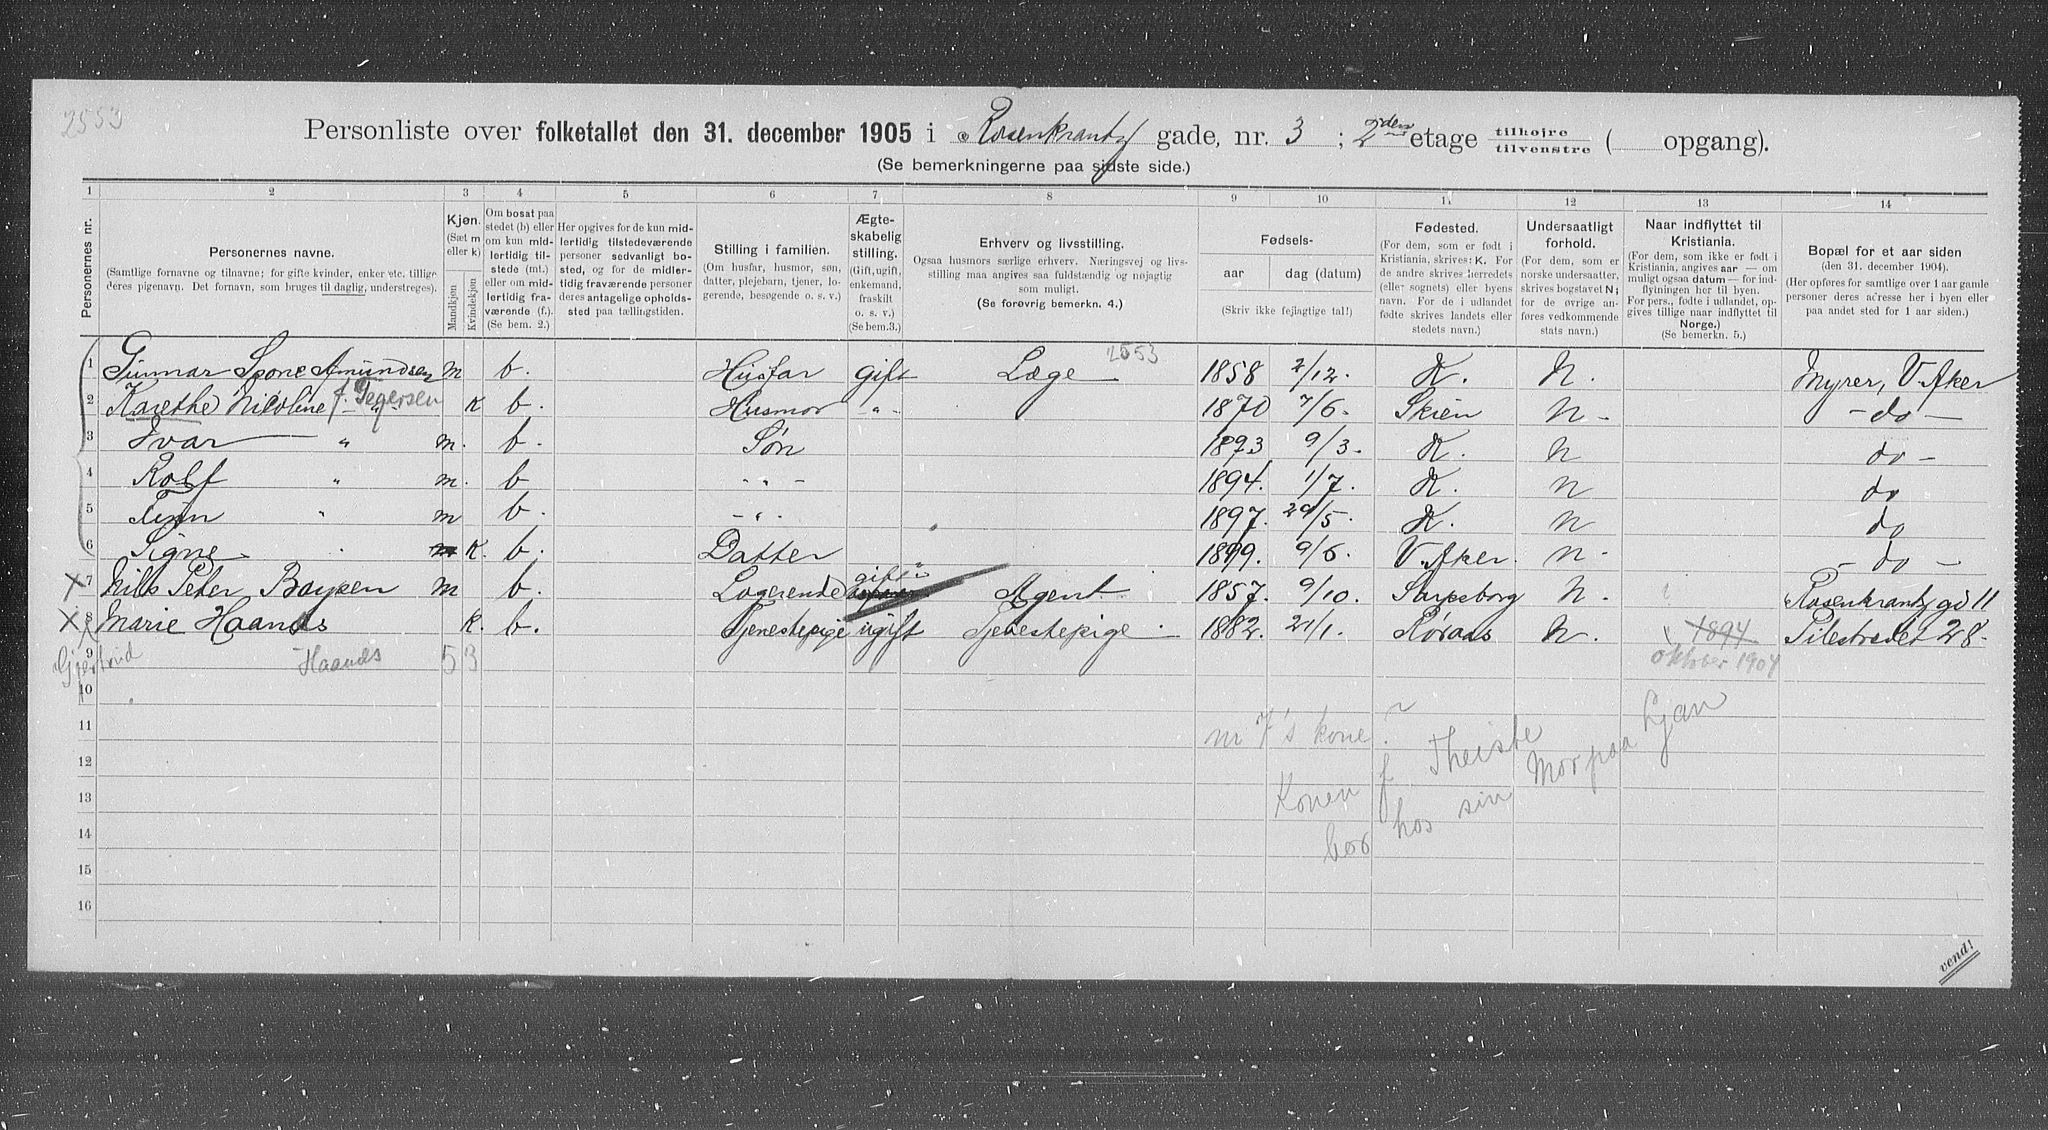 2553
Personliste over folketallet den 31. december 1905 i Rosenkrantz gade, nr. 3 ; 2den etage tilhøjre tilvenstre ( opgang).
(Se bemerkningerne paa sidste side.)
1 2 3 4 5 6 7 8 9 10 11 12 13 14
Personernes nr.
Personernes navne.
(Samtlige fornavne og tilnavne; for gifte kvinder, enker etc. tillige
deres pigenavn. Det fornavn, som bruges til daglig, understreges).
Kjøn.
(Sæt m
eller k)
Mandkjøn
Kvindekjøn
Om bosat paa
stedet (b) eller
om kun mid-
lertidig til-
stede (mt.)
eller om mid-
lertidig fra-
værende (f.).
(Se bem. 2.)
Her opgives for de kun mid-
lertidig tilstedeværende
personer sedvanligt bo-
sted, og for de midler-
tidig fraværende personer
deres antagelige opholds-
sted paa tællingstiden.
Stilling i familien.
(Om husfar, husmor, søn,
datter, plejebarn, tjener, lo-
gerende, besøgende o. s. v.)
Ægte-
skabelig
stilling.
(Gift, ugift,
enkemand,
fraskilt
o. s. v.)
(Se bem.3.)
Erhverv og livsstilling.
Ogsaa husmors særlige erhverv. Næringsvej og livs-
stilling maa angives saa fuldstændig og nøjagtig
som muligt.
(Se forøvrig bemerkn. 4.)
Fødsels-
aar dag (datum)
(Skriv ikke fejlagtige tal!)
Fødested.
(For dem, som er født i
Kristiania, skrives: K. For
de andre skrives herredets
(eller sognets) eller byens
navn. For de i udlandet
fødte skrives landets eller
stedets navn.)
Undersaatligt
forhold.
(For dem, som er
norske undersaatter,
skrives bogstavet N;
for de øvrige an-
føres vedkommende
stats navn.)
Naar indflyttet til
Kristiania.
(For dem, som ikke er født i
Kristiania, angives aar — om
muligt ogsaa datum — for ind-
flytningen her til byen.
For pers., fødte i udlandet, op-
gives tillige naar indflyttet til
Norge.)
(Se bemerkn. 5.)
Bopæl for et aar siden
(den 31. december 1904).
(Her opføres for samtlige over 1 aar gamle
personer deres adresse her i byen eller
paa andet sted for 1 aar siden.)
2553
1 Gunnar Spone Amundsen m b. Husfar gift Læge 1858 2/12. K. N. Myrer, V. Aker
2 Karethe Nicoline f. Segersen K b. Husmor -"- 1870 7/6. Skien N - - do -
3 Ivar " m. b. Søn 1893 9/3. K. N do -
4 Rolf " m. b - " - 1894. 1/7. K. N do
5 Finn " m b. - " - 1897. 29/5. K. N do
6 Signe " m K. b. Datter 1899. 9/6. V. Aker. N - - do -
X 7 Nils Peter Baysen m b. Logerende gift Agent 1857. 9/10. Sarpsborg N. Rosenkrantz gd 11
X 8 Marie Haands K. b. Tjenestepige ugift Tjenestepige 1882. 21/1. Røraas N. 1894 Pilestrædet 28.
9 Gjertrud Haands 53 oktober 1904
10
11 nr 7's kone ?
12 Konen f. Theiste
13 bor hos sin Mor paa Ljan
14
15
16
vend!